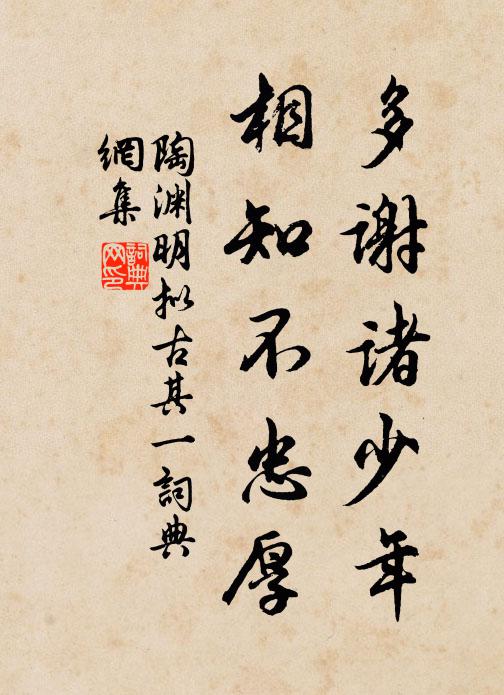 多谢诸少年
相知不忠厚
陶渊明拟古其一词典
網集
詞典
网印